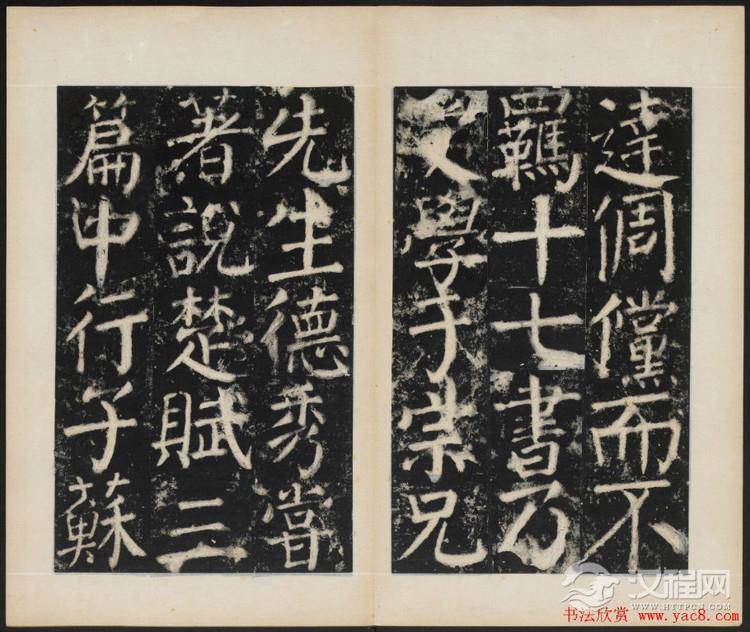 達倜儻而不
羈十七書乃
文學于宗兄
先生德秀嘗
著說楚賦三
篇中行子蘇
汉程网
WWW.HTTPCN.COM
书法欣赏 www.yac8.com